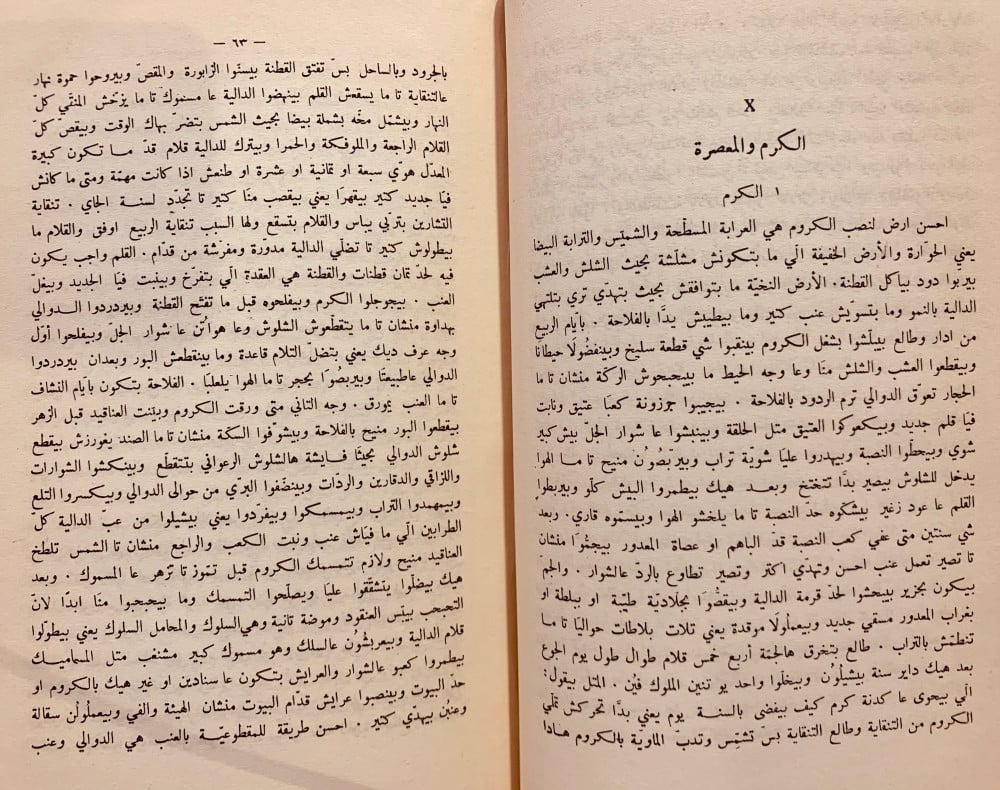 X
الكرم والمعصرة
١ الكرم
احسن ارض لنصب الكروم هي العرابة المسطّحة والشمتِس والترابة البيضا
يعني الحوّارة والأرض الخفيفة الّي ما بتكونش مثلّشة بجيث الشلش والعشب
بيربّوا دود بياكل القطنة. الأرض النخيّة ما بتوافقش بجيث بتهدّي تري بتلتهي
الدالية بالنمو وما بتسويش عنب كتير وما بيطيبش يدًا بالفلاحة . بايّام الربيع
من ادار وطالع بيبلّشوا بشغل الكروم بينقبوا شي قطعة سليخ وبينفضولا حيطانًا
وبيقطعوا العشب والشلش منّا وعا وجه الحيط ما بيحبحوش الركّة منشان تا ما
الحجار تعوق الدوالي ترم الردود بالفلاحة . بيجيبوا جوزونة كعبا عتيق ونابت
فيّا قلم جديد وبيكعوكوا العتيق متل الحلقة وبينبشوا عا شوار الجلّ بيش كبير
شوي وبيحطّوا النصبة وبيهدروا عليا شويّة تراب وبيربّصُوُن منيح تا مـا الهوا
يدخل للشلوش بيصير بدّا تتختخ وبعـد هيك بيطمروا البيش كلّو وبيربطوا
القلم عا عود زغير بيشكوه حدّ النصبة تا ما يلخشو الهوا وبيستموه قاري. وبعد
شي سنتين متى عفي كعب النصبة قدّ الباهم او عصاة المعدور بيجثّوَا منشان
تا تصير تعمل عنب احسن وتهدّي اكتر وتصير تطاوع بالردّ عالشوار . والجم
بيكون بخنزير بيبحشوا لحدّ قرمة الدالية وبيقصُّوَا بجلاديّة طيّبة او ببلطة او
بغراب المعدور مسقي جديد وبيعملُولَا موقدة يعني تلات بلاطات حواليّا تا ما
تنطمّش بالتراب . طالع بتخرق هالجتّة أربع خمس قلام طوال طول يوم الجوع
بعد هيك داير سنة بيشيلُوُن وبيخلّوا واحد يو تنين الملوك فيُن . المتل بيقول :
الّي بيحوى عا كدنة كرم كيف بيفضى بالسنة يوم يعني بدّا تحركش تملّي
الكروم من التنقاية وطالع التنقاية بسّ تشتِس وتدبّ الماويّة بالكروم هـاذا
— ٦٣ —
بالجرود وبالساحل بسّ تفتق القطنة بيسنّوا الزابورة والمقصّ وبيروحوا حموة نهار
عالتنقاية تا ما يسقعش القلم بينهضوا الدالية عا مسموك تا ما يزخّش المنقّي كلّ
النهار وبيشتمل مخّه بشملة بيضا بجيث الشمس بتضرّ بهاك الوقت وبيقصّ كلّ
القلام الراجعة والملوفكة والحمرا وبيترك للدالية قلام قدّ مـا تكون كبيرة
المعدّل هويّ سبعة او تمانية او عشرة او طنعش اذا كانت مهمّة ومتى ما كانش
فيّا جديد كتير بيقهرَا يعني بيقصب منّا كتير تا تجدّد لسنـة الجاي . تنقاية
التشارين بتربّي يباس والقلام بتسقع ولها السبب تنقاية الربيع اوفق والقلام ما
بيطولوش كتير تا تضلّي الدالية مدوّرة ومفرّشة من قدّام. القلم واجب يكون
فيه لحدّ تمان قطنات والقطنة هي العقدة الّي بتفرّخ وبينبت فيّا الجديد وبيغلّ
العنب . بيجولوا الكرم وبيفلحوه قبل ما تفتّح القطنة وبيردردوا الـدوالي
بهداوة منشان تا ما يتقطّعوش الشلوش وعا هوانُن عا شوار الجلّ وبيفلحوا أوّل
وجه عرف ديك يعني بتضلّ التلام قاعدة وما بينقطعش البور وبعدان بيردردوا
الدوالي عاطبيعتَا وبيربصُوَا بججر تا ما الهوا يلعلبَا . الفلاحة بتكون بايّام النشاف
تا ما العنب يمورق . وجه التاني متى ورقت الكروم وبيّنت العناقيد قبل الزهر
بيقطعوا البور منيح بالفلاحة وبيشوّفوا السكّة منشان تا ما الصند يغورزش بيقطع
شلوش الدوالي بجيثا فايشة هالشلوش الرعواني بتتقطّع وبينكشوا الشوارات
واللزاقي والدقارين والردّات وبينضّفوا البرّي من حوالى الدوالي وبيكسروا التلع
وبيمهدوا التراب وبيمسمكوا وبيفردّوا يعني بيشيلوا من عبّ الدالية كلّ
الطرابين الّي ما فيّاش عنب ونبت الكعب والراجع منشان تا الشمس تلطخ
العناقيد منيح ولازم تتمسمك الكروم قبل تـمّوز تا تزهر عا المسموك . وبعد
هيك بيضلّوا يتشقّقوا عليّا ويصلّحوا التمسمك وما بيجبجبوا منّا ابدًا لانّ
التجبجب بيبّس العنقود وموضة تانية وهي السلوك والمحامل السلوك يعني بيطولوا
قلام الدالية وبيعربشُون عالسلك وهو مسموك كبير مشنفب متل المسماميـك
بيطمروا كعبو عالشوار والعرايش بتكون عا سنادين او غير هيك بالكروم او
حدّ البيوت وبينصبوا عرايش قدّام البيوت منشان الهيئة والفي وبيعملُولُن سقالة
وعنبُن بيهدّي كتير . احسن طريقة للمقطوعيّـة بالعنب هي الدوالي وعنب